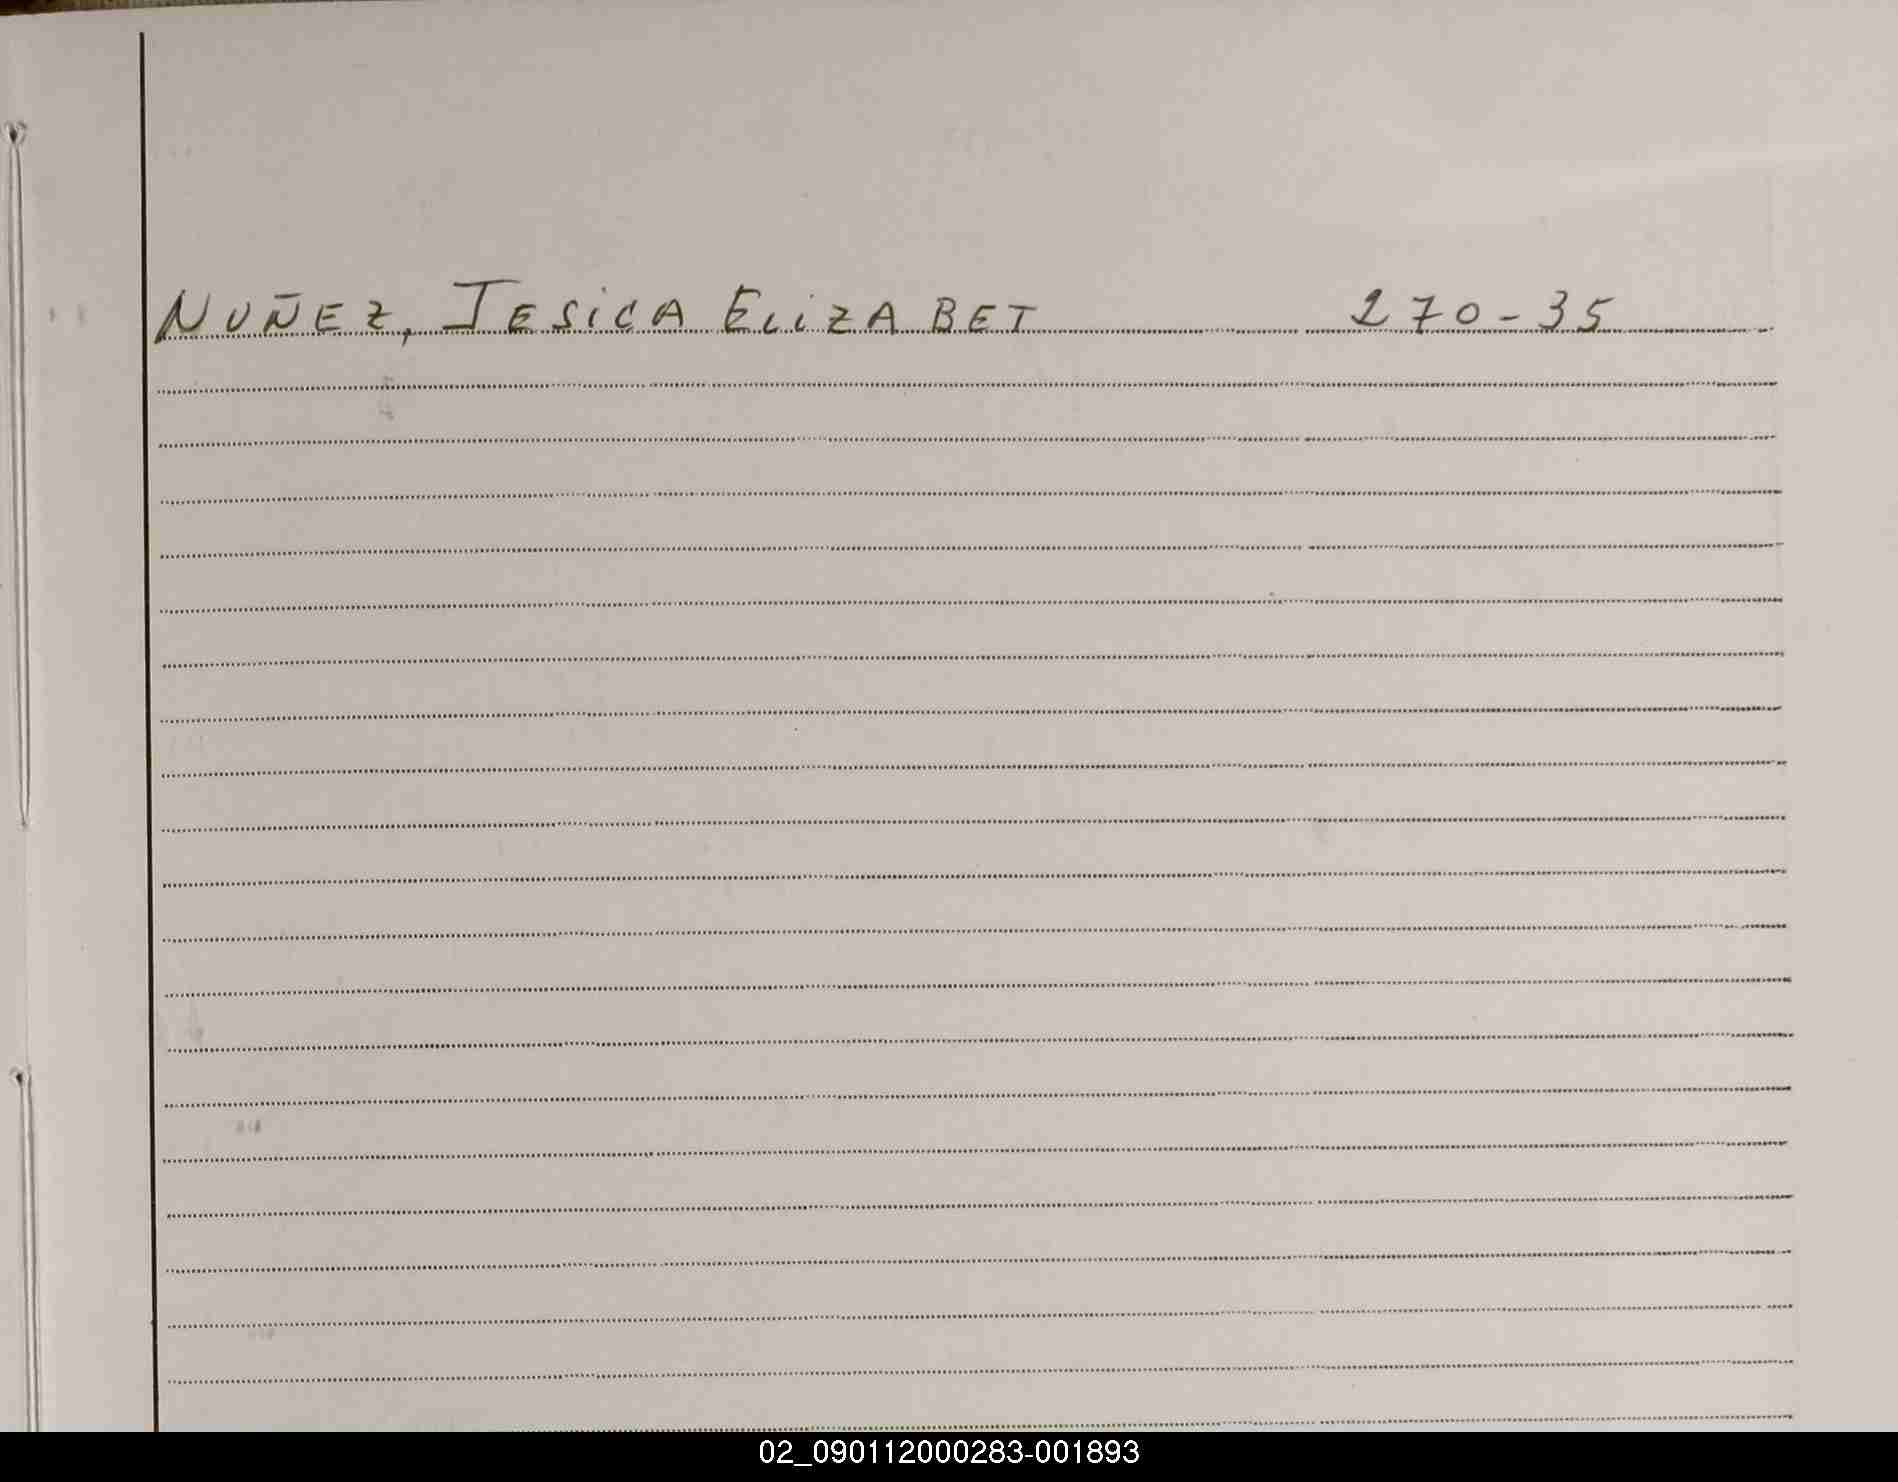 NUÑEZ, JESICA ELIZABET 270-35
02_090112000283-001893